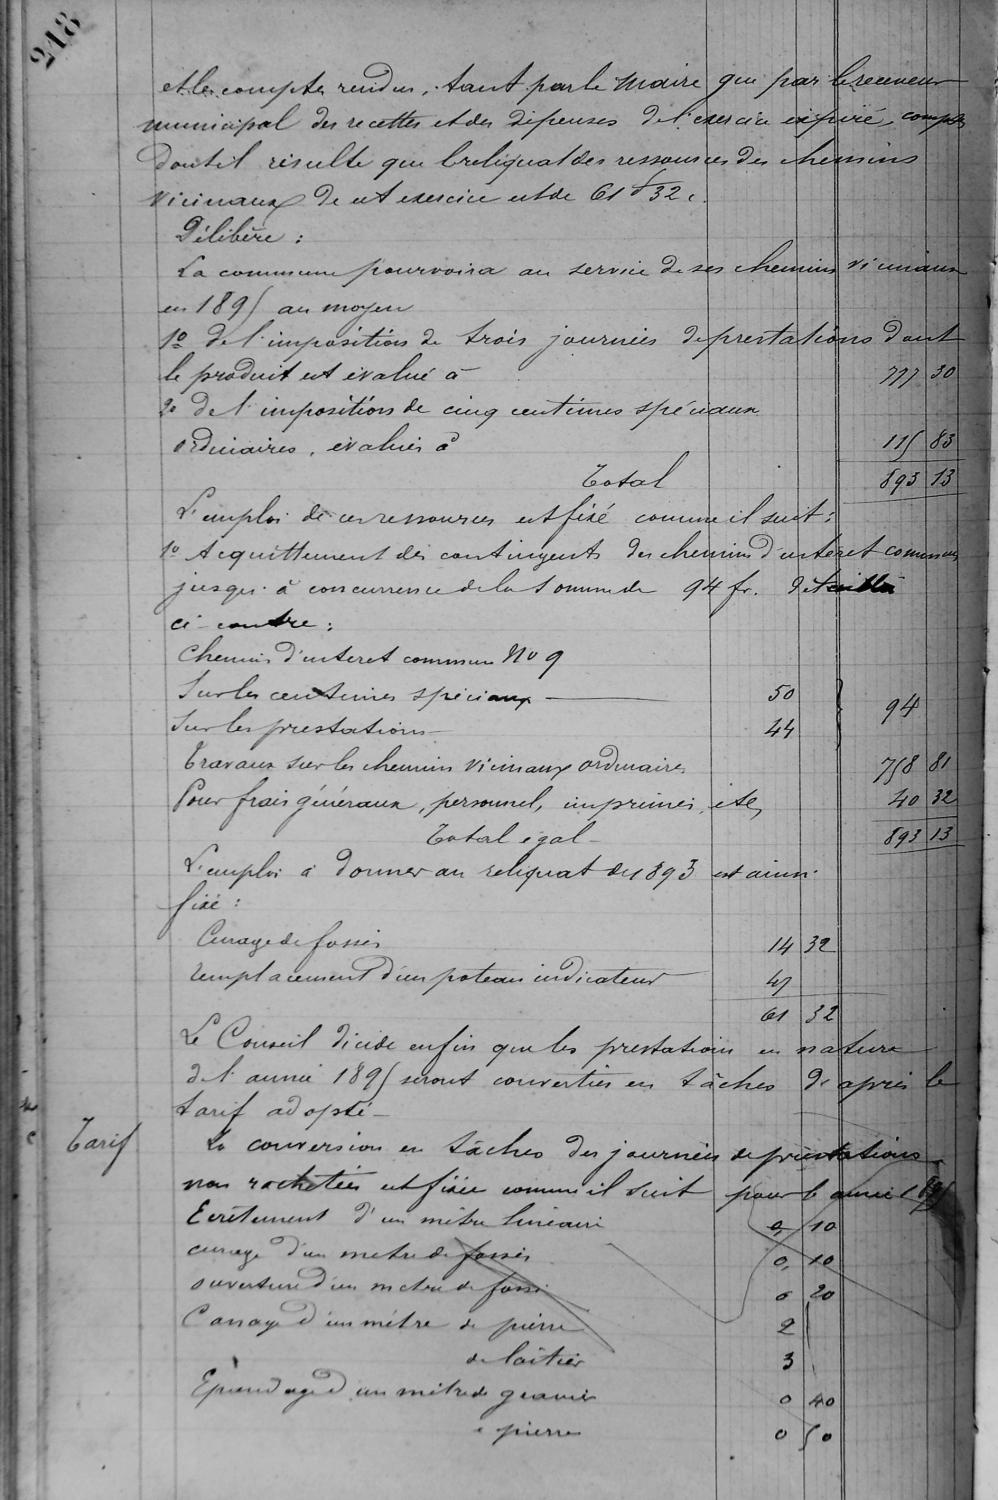 218
et les comptes rendus, tant par le Maire que par le receveur
municipal des recettes et des dépenses de l'exercice expiré, comptes
dont il résulte que le reliquat des ressources des chemins
vicinaux de cet exercice est de 61 f 32 c.
Délibère :
La commune pourvoira au service de ses chemins vicinaux
en 1895 au moyen
1º de l'imposition de trois journées de prestations dont
le produit est évalué à 777 30
2º de l'imposition de cinq centimes spéciaux
ordinaires, évalués à 115 83
Total 893 13
L'emploi de ces ressources est fixé comme il suit :
1º Acquittement des contingents des chemins d'intérêt commun
jusqu'à concurrence de la somme de 94 fr. détaillée
ci-contre :
Chemin d'interet commun No 9
Sur les centimes spéciaux 50
94
Sur les prestations 44
Travaux sur les chemins vicinaux ordinaires 758 81
Pour frais généraux, personnel, imprimés, etc, 40 32
Total égal 893 13
L'emploi à donner au reliquat de 1893 est ainsi
fixé :
Curage de fossés 14 32
Remplacement d'un poteau indicateur 47
61 32
Le Conseil décide enfin que les prestations en nature
de l'année 1895 seront converties en tâches d'après le
tarif adopté
Tarif La conversion en tâches des journées de prestations
non rachetées est fixée comme il suit pour l'année 1895
Ecrêtement d'un mètre linéaire 0, 10
curage d'un metre de fossés 0, 10
ouverture d'un metre de fossé 0 20
Cassage d'un mètre de pierre 2
de laitier 3
Épandage d'un mètre de gravier 0 40
" pierre 0 50